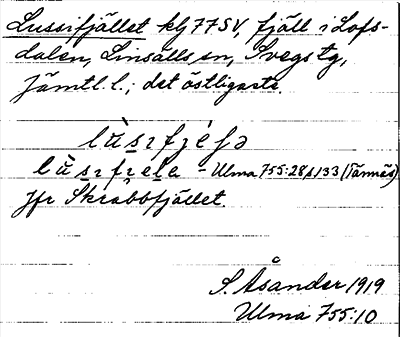 Lussifjället klj 77 SV, fjäll i Lofs-
dalen, Linsälls sn, Svegs tg,
Jämtl. l.; det östligaste.
lùsɪfjéḷə
lùsɪfɪele - Ulma 755:28 s 133 (Tännäs)
Jfr Skrabbfjället.
S. Åsander 1919
Ulma 755:10